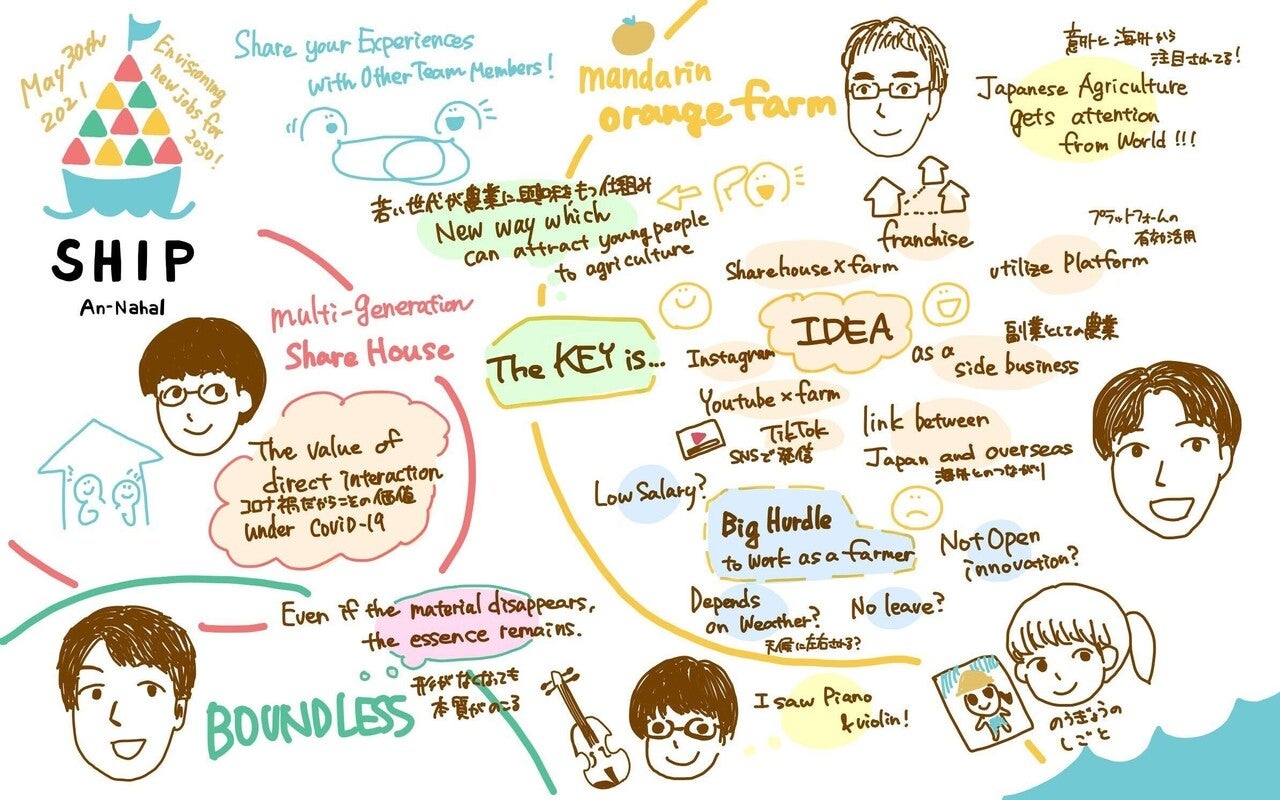 May 30th
2021
Envisioning
new Jobs for
2030!
SHIP
An-Nahal
Share your Experiences
with Other Team Members!
mandarin
orange farm
意外と海外から
注目されてる!
Japanese Agriculture
gets attention
from World!!!
若い世代が農業に興味をもつ仕組み
New way which
can attract young people
to agriculture
franchise
プラットフォームの
有効活用
utilize Platform
Sharehouse×farm
IDEA
The KEY is...
Instagram
Youtube×farm
TikTok
SNSで発信
副業としての農業
as a
side business
link between
Japan and overseas
海外とのつながり
multi-generation
Share House
The value of
direct interaction
コロナ禍だからこその価値
under CoviD-19
Low Salary?
Big Hurdle
to work as a farmer
Not Open
innovation?
Depends
on Weather?
天候に左右される?
No leave?
Even if the material disappears,
the essence remains.
形がなくなっても
本質がのこる
BOUNDLESS
I saw Piano
& violin!
のうぎょうの
しごと